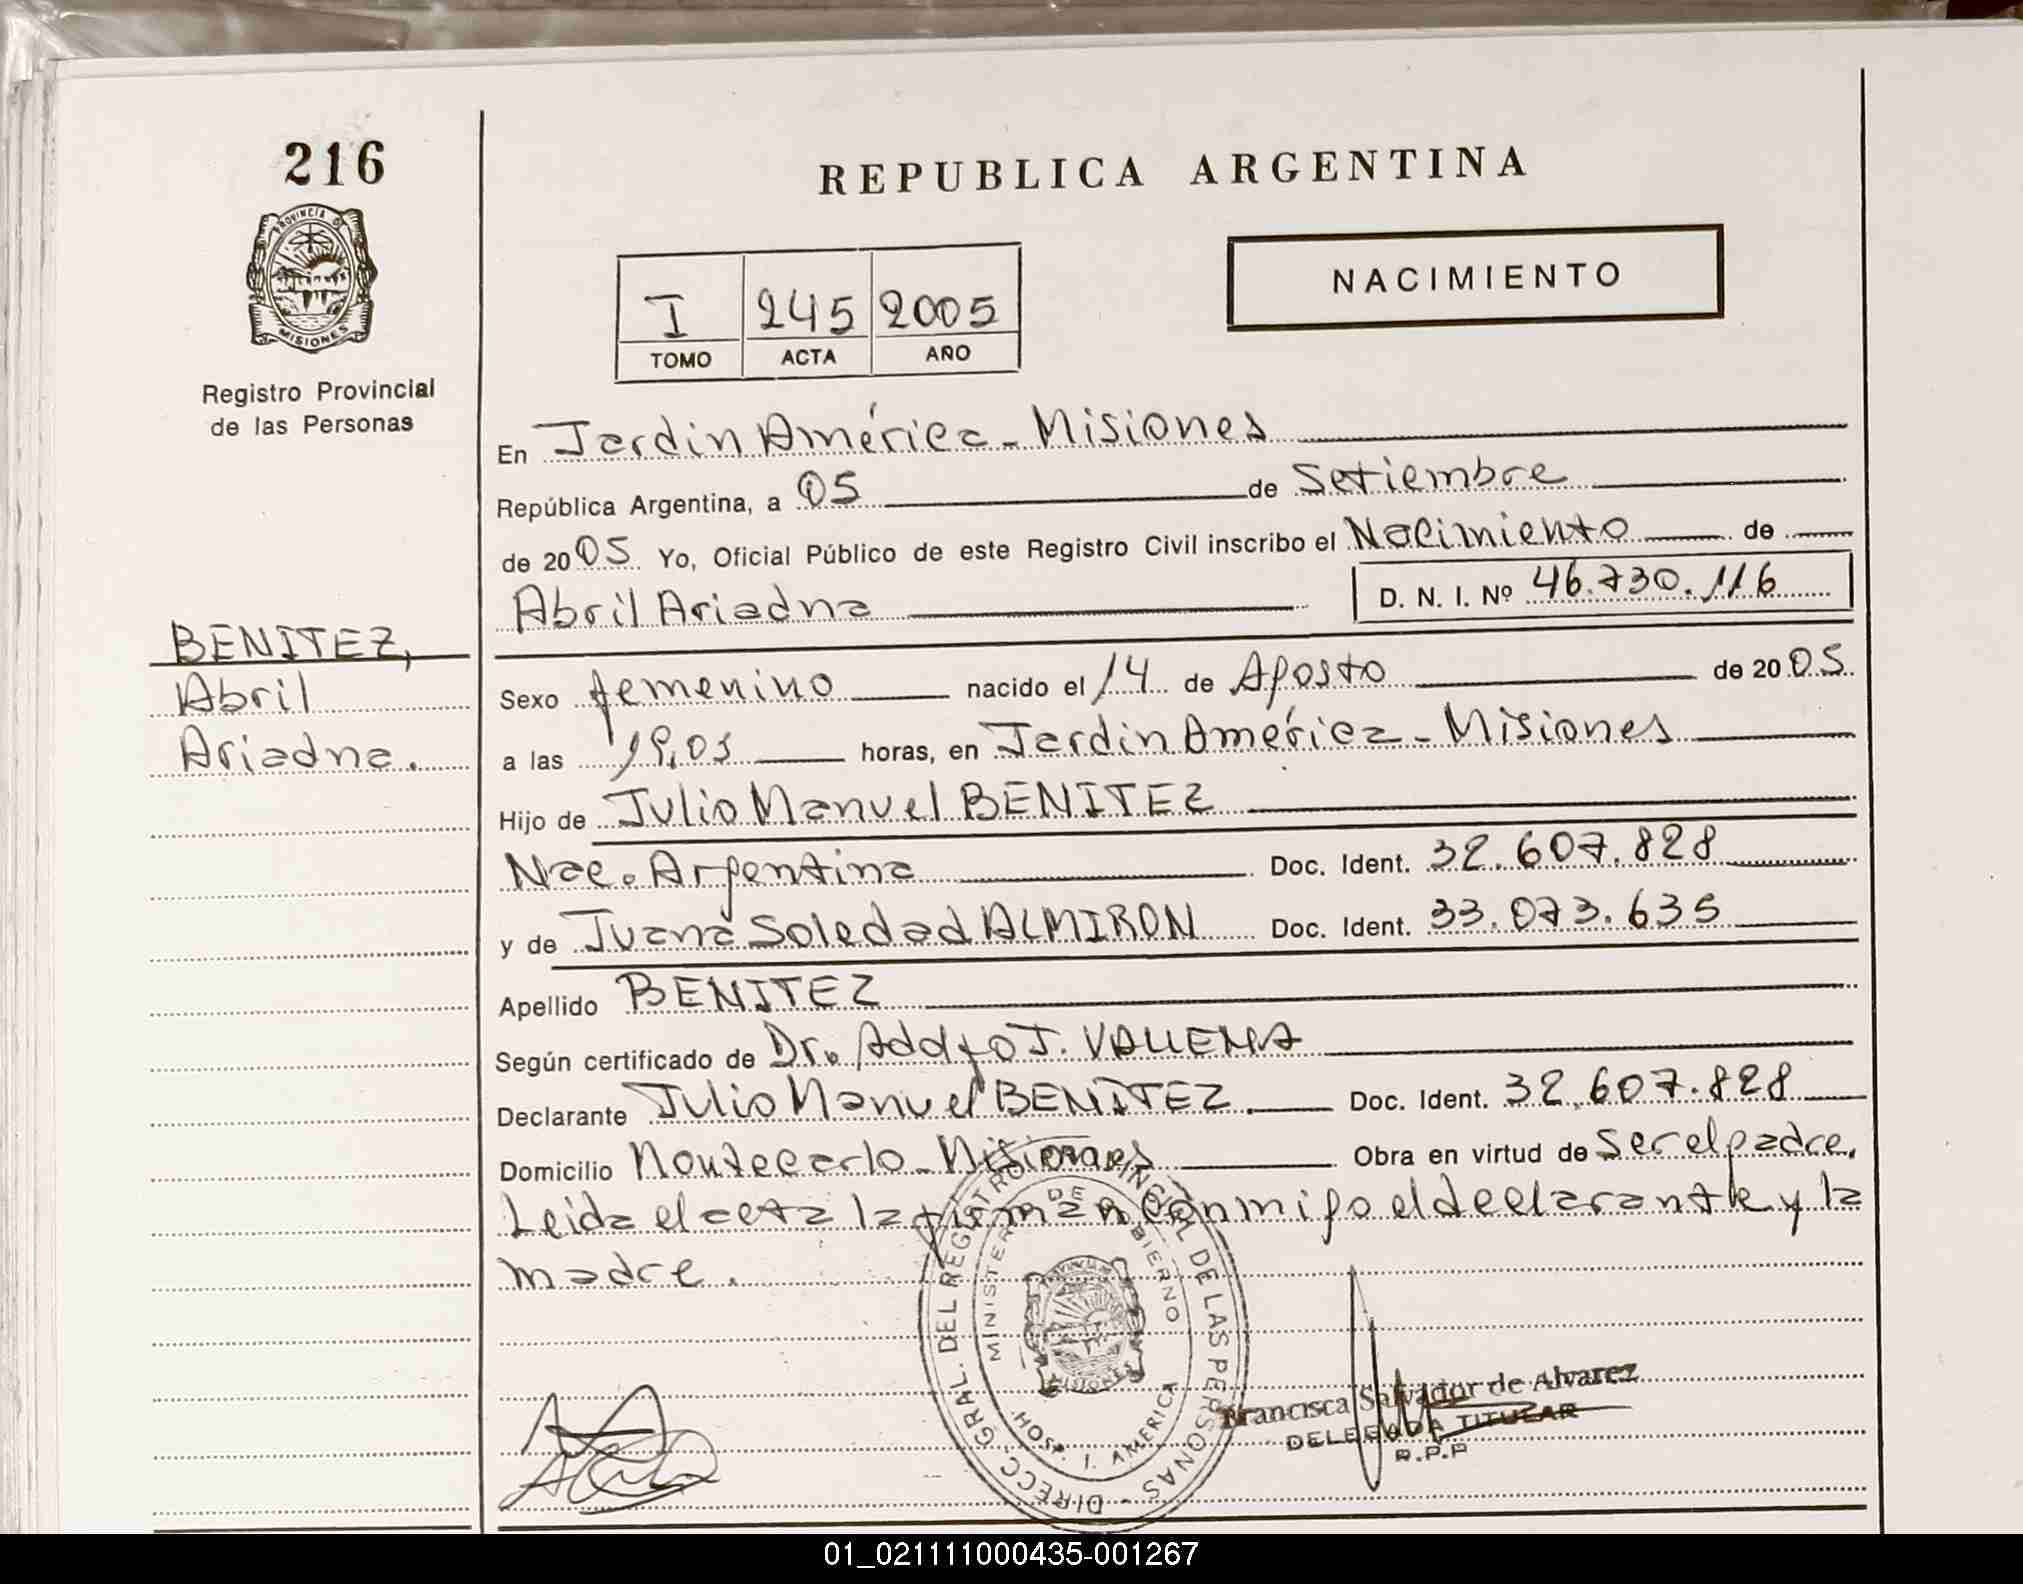 216
REPUBLICA ARGENTINA
PROVINCIA DE
MISIONES
Registro Provincial
de las Personas
NACIMIENTO
I 245 2005
TOMO ACTA AÑO
En Jardin América - Misiones
República Argentina, a 05 de Setiembre
de 2005 Yo, Oficial Público de este Registro Civil inscribo el Nacimiento de
Abril Ariadna
D. N. I. Nº 46.730.116
BENITEZ,
Abril
Ariadna.
Sexo femenino nacido el 14 de Agosto de 2005.
a las 19,05 horas, en Jardin América - Misiones
Hijo de Julio Manuel BENITEZ
Nac. Argentina Doc. Ident. 32.607.828
y de Juana Soledad ALMIRON Doc. Ident. 33.073.635
Apellido BENITEZ
Según certificado de Dr. Adolfo J.
Declarante Julio Manuel BENITEZ. Doc. Ident. 32.607.828
Domicilio Montecarlo - Misiones Obra en virtud de ser el padre.
Leida el acta la firman conmigo el declarante y la
madre.
DIRECC. GRAL. DEL REGISTRO PROVINCIAL DE LAS PERSONAS
MINISTERIO DE GOBIERNO
MISIONES
HOSP. J. AMERICA
Francisca Salvador de Alvarez
DELEGADA TITULAR
R.P.P
01_021111000435-001267